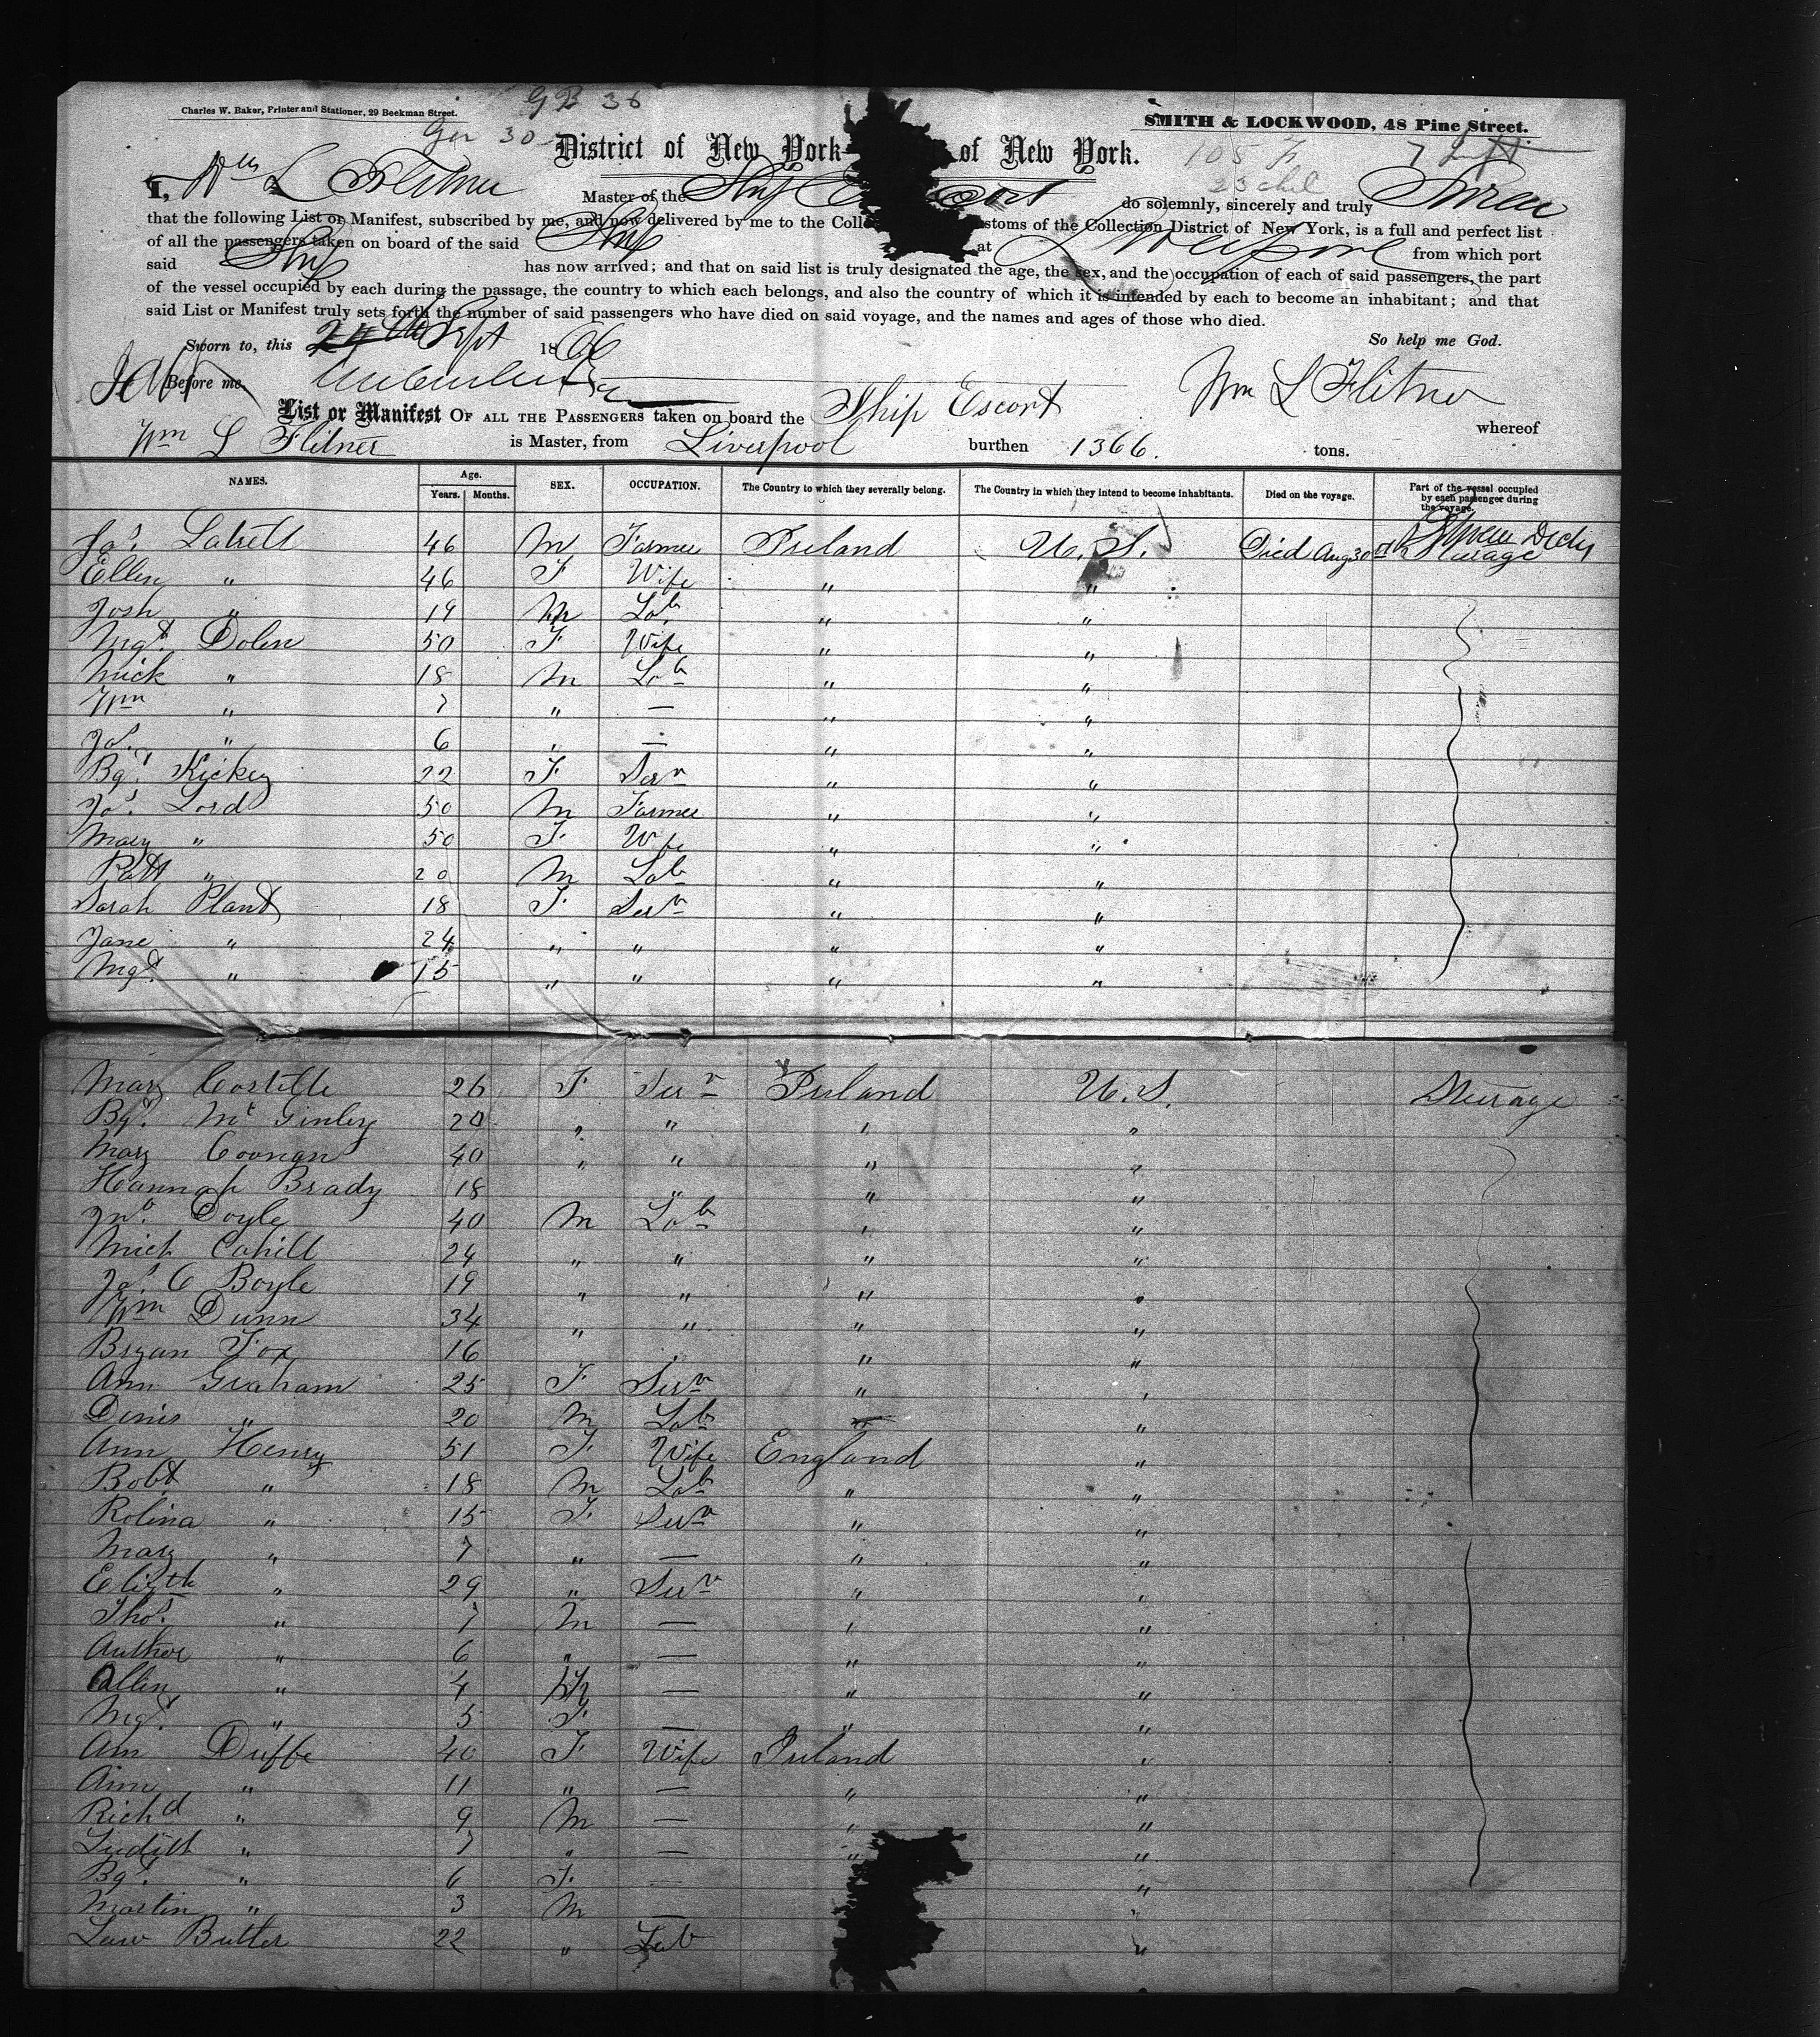 Charles W. Baker, Printer and Stationer, 29 Beekman Street.
GB 36
Ger 30
SMITH & LOCKWOOD, 48 Pine Street.
District of New York of New York.
105
23 chil
I, Wm L Flitner Master of the Ship do solemnly, sincerely and truly Swear
that the following List or Manifest, subscribed by me, and now delivered by me to the Colle stoms of the Collection District of New York, is a full and perfect list
of all the passengers taken on board of the said Ship at Liverpool from which port
said Ship has now arrived; and that on said list is truly designated the age, the sex, and the occupation of each of said passengers, the part
of the vessel occupied by each during the passage, the country to which each belongs, and also the country of which it is intended by each to become an inhabitant; and that
said List or Manifest truly sets forth the number of said passengers who have died on said voyage, and the names and ages of those who died.
Sworn to, this 24th Sept 1866 So help me God.
Before me, Wm L Flitner
List or Manifest OF ALL THE PASSENGERS taken on board the Ship Escort whereof
Wm L Flitner is Master, from Liverpool burthen 1366. tons.
NAMES. Age. Years. Months. SEX. OCCUPATION. The Country to which they severally belong. The Country in which they intend to become inhabitants. Died on the voyage. Part of the vessel occupied by each passenger during the voyage.
Jas. 46 M Farmer Ireland U.S. Died Aug 30 Steerage
Ellen " 46 F Wife " "
Josh " 19 M Lab. " "
Mgt. Dolen 50 F Wife " "
Mick " 18 M Lab " "
Wm " 7 " — " "
Jas. " 6 " — " "
Bgt. Hickey 22 F Serv " "
Jas. Lord 50 M Farmer " "
Mary " 50 F Wife " "
Patt " 20 M Lab " "
Sarah Plant 18 F Serv " "
Jane " 24 " " " "
Mgt. " 15 " " " "
Mary Costille 26 F Serv Ireland U.S. Steerage
Bgt. McGinley 20 " " " "
Mary Coonan 40 " " " "
Hannah Brady 18 " " "
Jno. Doyle 40 M Lab " "
Mich Cahill 24 " " " "
Jas. C Boyle 19 " " " "
Wm Dunn 34 " " " "
Bryan Fox 16 " "
Ann Graham 25 F Serv " "
Denis " 20 M Lab " "
Ann Henry 51 F Wife England "
Robt " 18 M Lab " "
Rolina " 15 F Serv " "
Mary " 7 " — " "
Elizth " 29 " Serv " "
Thos. " 7 M — " "
Author " 6 " — " "
Allen " 4 M — " "
Mgt. " 5 F — " "
Am Duffe 40 F Wife Ireland "
Ann " 11 " — " "
Richd " 9 M — " "
Judith " 7 " — " "
Bgt. " 6 F — "
Martin " 3 M — "
Law Butler 22 " Lab "